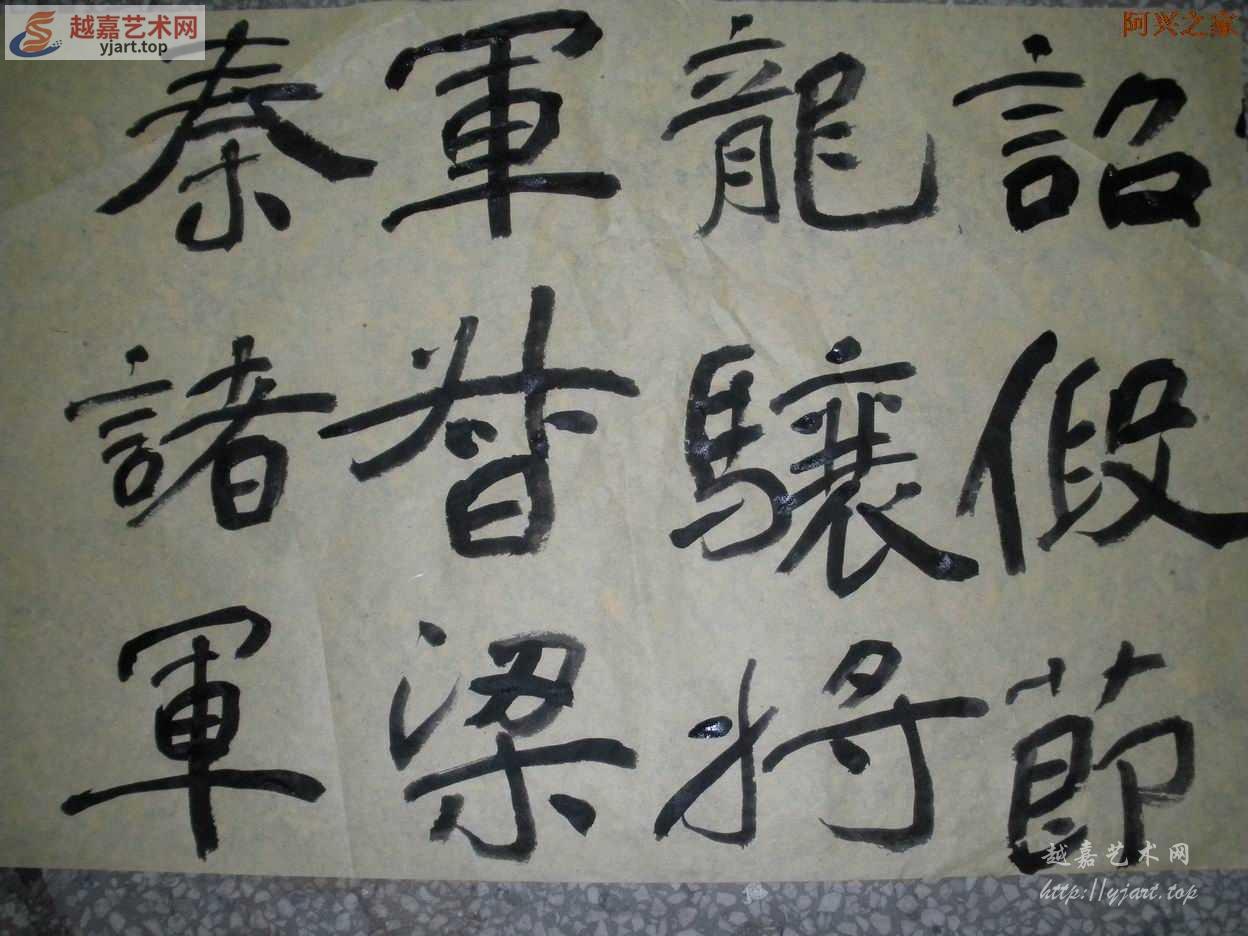 詔假節
龍驤將
軍督梁
秦諸軍
越嘉艺术网
yjart.top
阿兴之家
越嘉艺术网
http://yjart.top